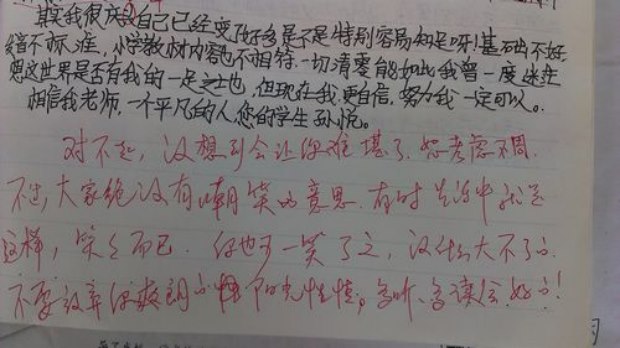 其实我很庆幸自己已经变了好多是不是特别容易知足呀!基础不好,
发音不标准,小学教材内容也不相符.一切清零
想这世界是否有我的一足之地,但现在我更自信,努力我一定可以。
相信我老师,一个平凡的人您的学生孙悦。
对不起,没想到会让你难堪了.恕考虑不周.
不过,大家绝没有嘲笑的意思.有时生活中就是
这样,笑笑而已.你也可一笑了之,没什么大不了的.
不要放弃你爽朗的 阳光性情。多听、多读会好的!